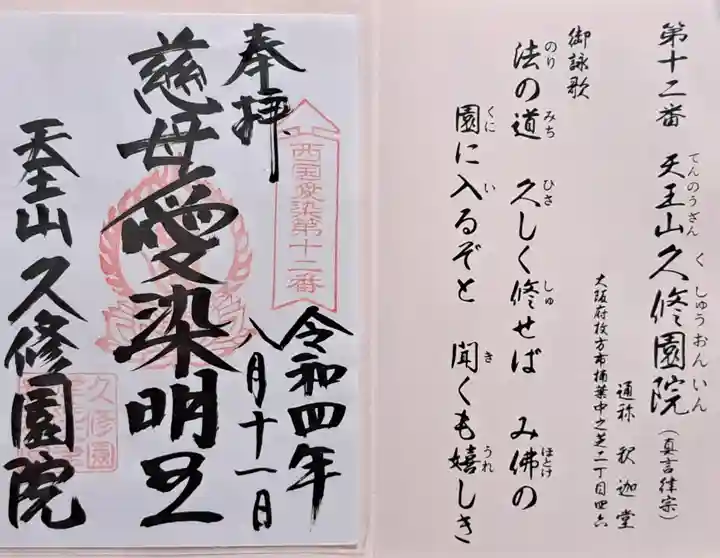 第十二番 天王山久修園院(真言律宗)
てんのうざん く しゅうおんいん
通称 釈迦堂
大阪府枚方市楠葉中之芝二丁目四六
御詠歌
法の道 久しく修せば み佛の
のり みち ひさ しゅ ほとけ
園に入るぞと 聞くも嬉しき
くに い き うれ
奉拝
西国愛染第十二番
令和四年
八月十一日
慈母愛染明王
天王山 久修園院
久修園